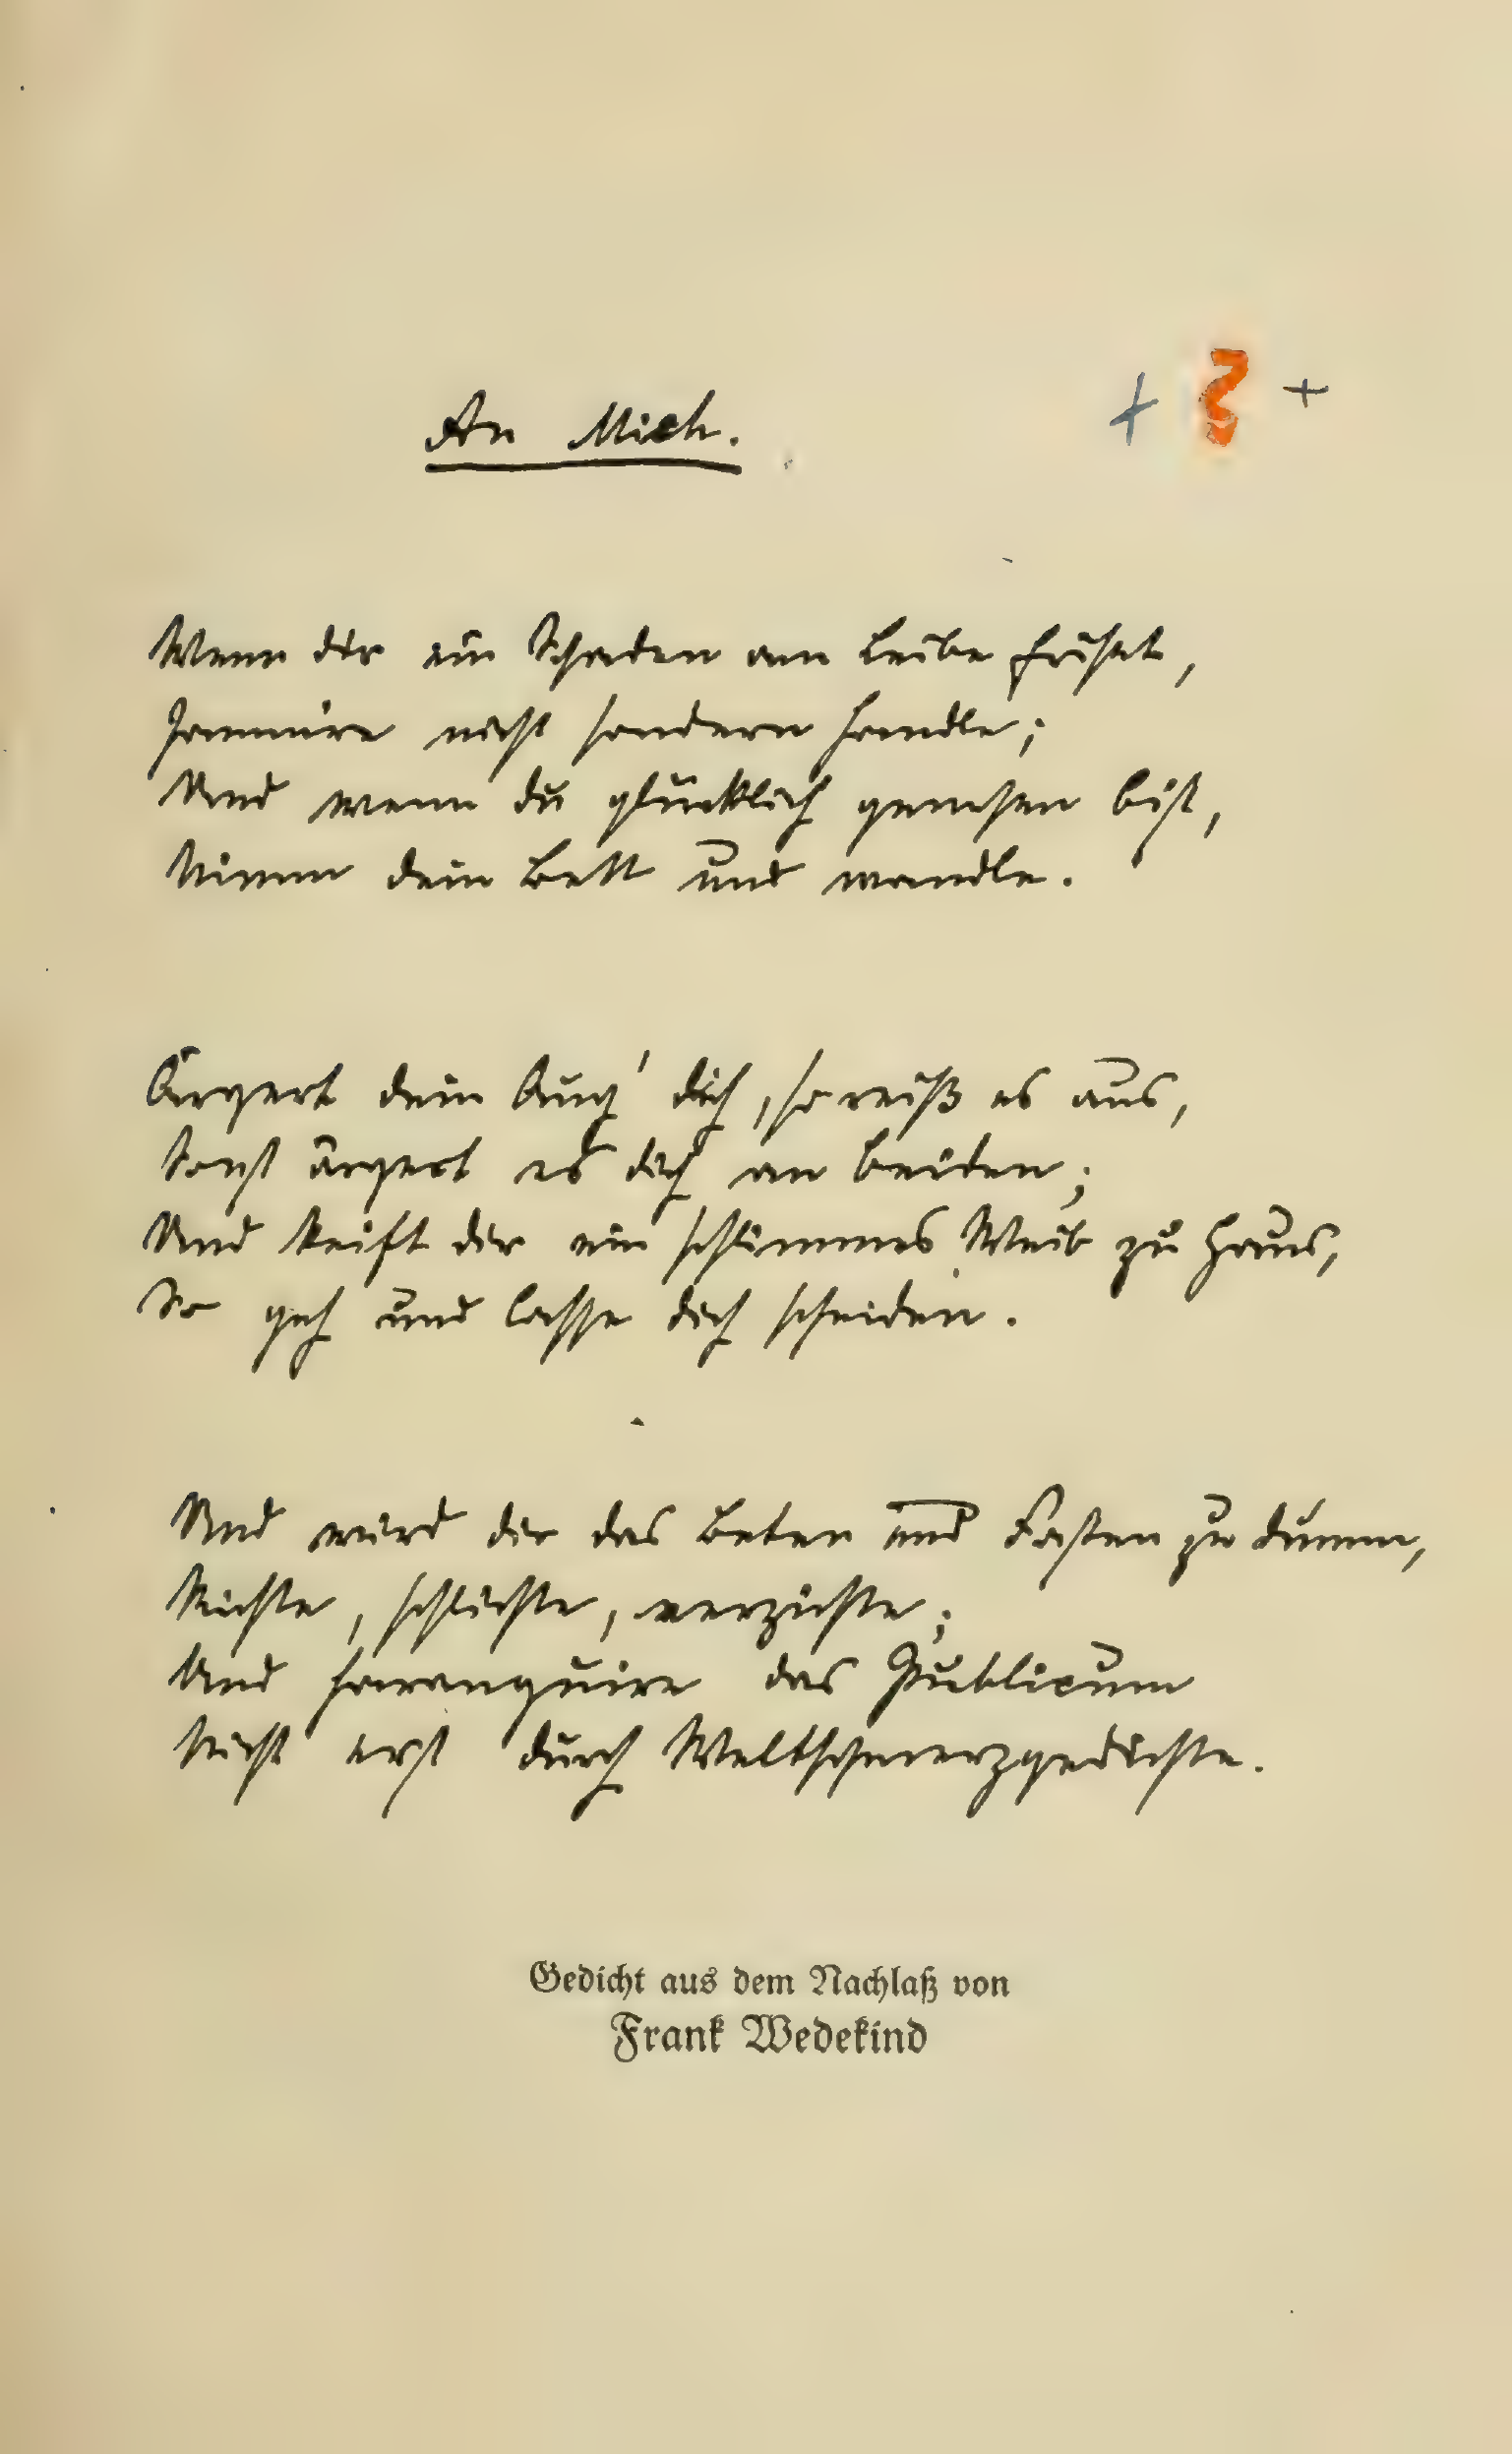 An Mich.
+ +
Wenn dir ein Schaden am Leibe frißt,
Jammire nicht sondern handle;
Und wenn du glücklich genesen bist,
Nimm dein Bett und wandle.
Ärgert dein Aug' dich, so reiß es aus,
Sonst ärgert es dich an beiden;
Und keift dir ein schlimmes Weib zu Haus,
So geh und lasse dich scheiden.
Und wird dir das Beten und Fasten zu dumm,
Richte, schlichte, verzichte;
Und haranguire das Publicum
Nicht erst durch Weltschmerzgedichte.
Gedicht aus dem Nachlaß von
Frank Wedekind